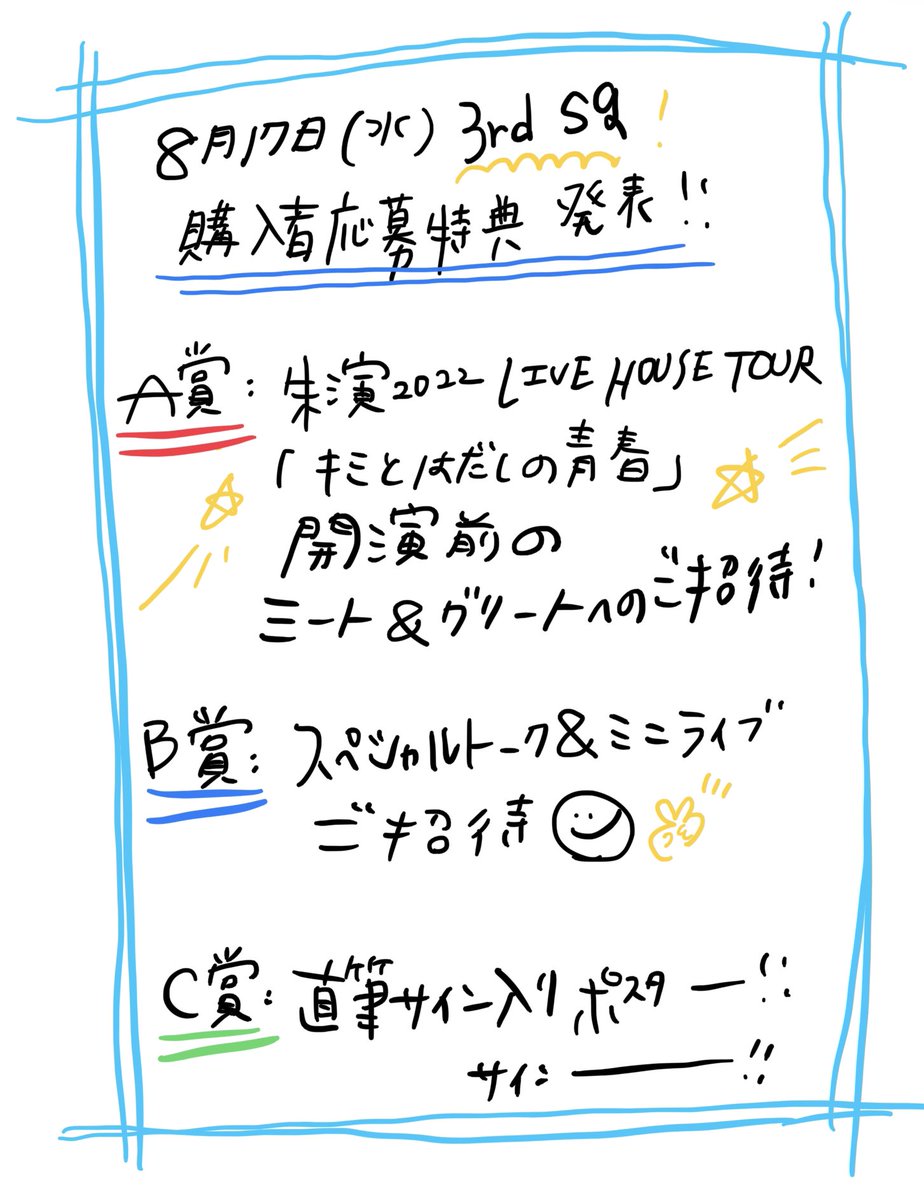 8月17日(水) 3rd Sg!
購入者応募特典 発表!!
A賞: 朱演2022 LIVE HOUSE TOUR
「キミとはだしの青春」
開演前の
ミート&グリートへのご招待!
B賞: スペシャルトーク&ミニライブ
ご招待
C賞: 直筆サイン入りポスター!!
サイン――!!